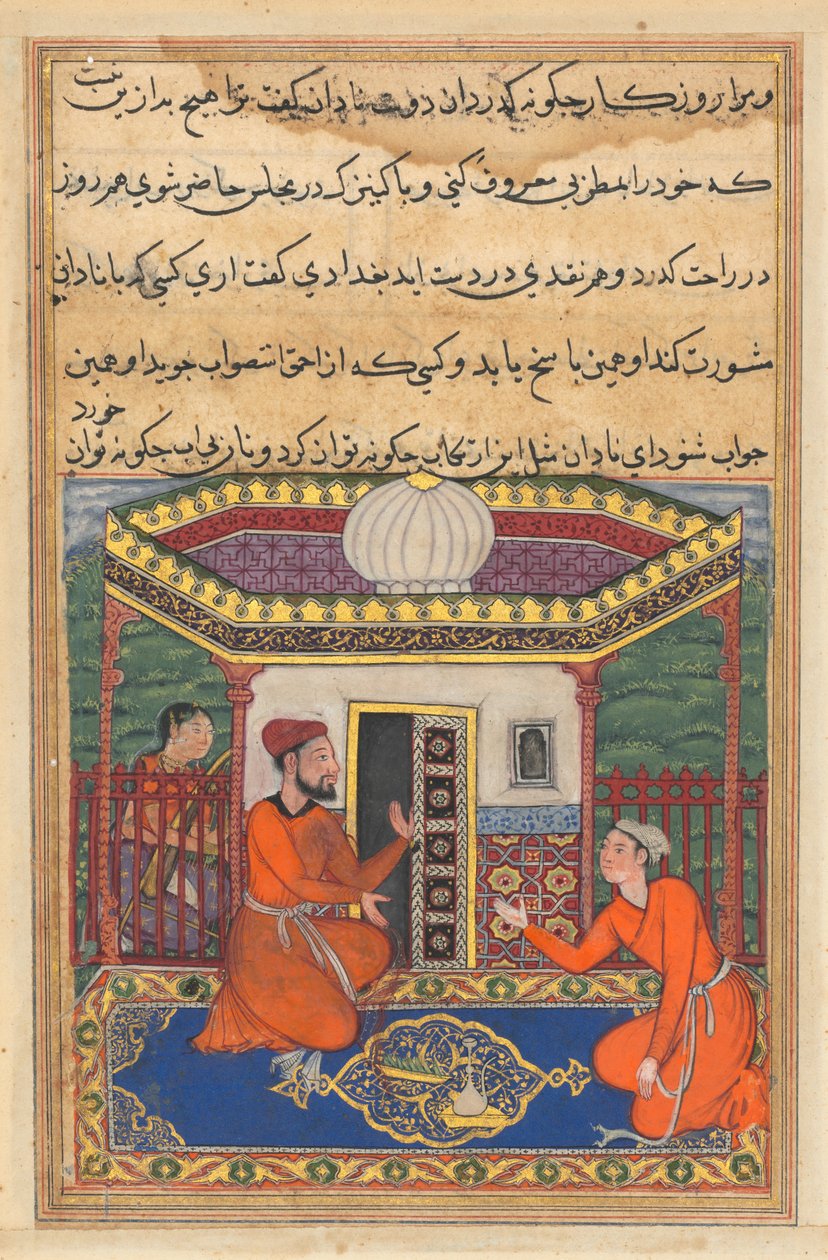 و مرا روزکار چکونه کدردان دوست نادان کفت ترا هیچ بدازین نیست
که خود را بمطربی معروف کنی و با کنیزک در مجلس حاضر شوی هم روز
در راحت کدرد و هم نقدی در دست اید بغدادی کفت اری کسی که با نادان
مشورت کند او همین پاسخ یابد و کسی که از احمق استصواب جوید او همین
جواب شنود ای نادان مثل این ارتکاب چکونه توان کرد و نان بی اب چکونه توان خورد